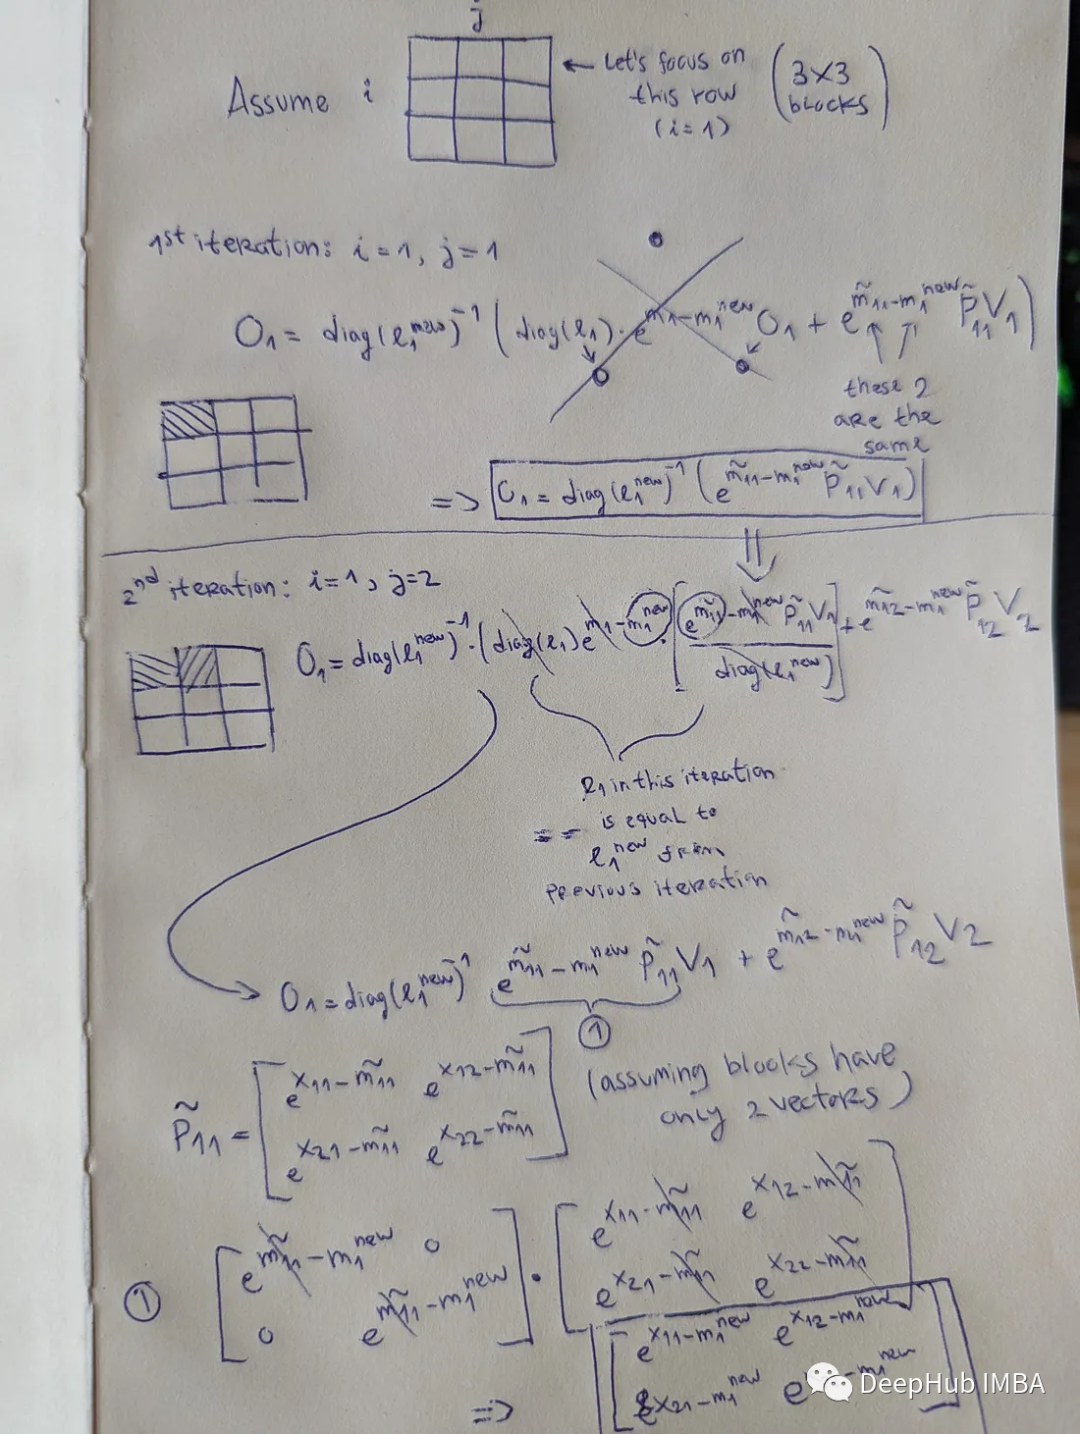 j
Assume i
← Let's focus on
this row
(i=1)
(3X3
blocks)
1st iteration: i=1, j=1
O₁ = diag(ℓ₁ⁿᵉʷ)⁻¹ (diag(ℓ₁)·e^{m₁-m₁ⁿᵉʷ} O₁ + e^{m̃₁₁-m₁ⁿᵉʷ} P̃₁₁V₁)
0
0
0
these 2
are the
same
=> O₁ = diag(ℓ₁ⁿᵉʷ)⁻¹ (e^{m̃₁₁-m₁ⁿᵉʷ} P̃₁₁V₁)
2nd iteration: i=1, j=2
O₁ = diag(ℓ₁ⁿᵉʷ)⁻¹·(diag(ℓ₁)e^{m₁-m₁ⁿᵉʷ}·[e^{m̃₁₁-m₁ⁿᵉʷ} P̃₁₁V₁ / diag(ℓ₁ⁿᵉʷ)] + e^{m̃₁₂-m₁ⁿᵉʷ} P̃₁₂V₂
ℓ₁ in this iteration
== is equal to
ℓ₁ⁿᵉʷ from
previous iteration
O₁ = diag(ℓ₁ⁿᵉʷ)⁻¹ e^{m̃₁₁-m₁ⁿᵉʷ} P̃₁₁V₁ + e^{m̃₁₂-m₁ⁿᵉʷ} P̃₁₂V₂
①
P̃₁₁ = [e^{x₁₁-m̃₁₁} e^{x₁₂-m̃₁₁}
e^{x₂₁-m̃₁₁} e^{x₂₂-m̃₁₁}]
(assuming blocks have
only 2 vectors)
① [e^{m̃₁₁-m₁ⁿᵉʷ} 0
0 e^{m̃₁₁-m₁ⁿᵉʷ}]
· [e^{x₁₁-m̃₁₁} e^{x₁₂-m̃₁₁}
e^{x₂₁-m̃₁₁} e^{x₂₂-m̃₁₁}]
=> [e^{x₁₁-m₁ⁿᵉʷ} e^{x₁₂-m₁ⁿᵉʷ}
e^{x₂₁-m₁ⁿᵉʷ} e^{-m₁ⁿᵉʷ}]
DeepHub IMBA